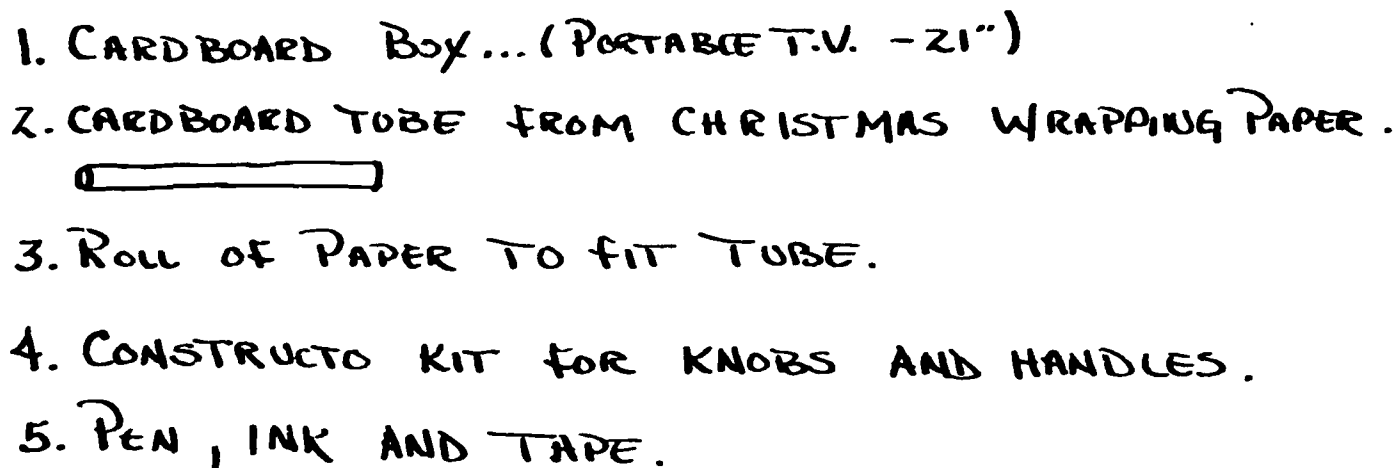 1. CARDBOARD BOX... (PORTABLE T.V. - 21")
2. CARDBOARD TUBE FROM CHRISTMAS WRAPPING PAPER.
3. ROLL OF PAPER TO FIT TUBE.
4. CONSTRUCTO KIT FOR KNOBS AND HANDLES.
5. PEN, INK AND TAPE.